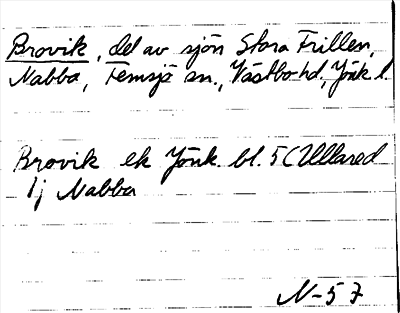 Brovik, del av sjön Stora Frillen,
Nabba, Femsjö sn., Västbo hd, Jönk l.
Brovik ek Jönk. bl. 5 (Ullared
1j Nabba
N-57